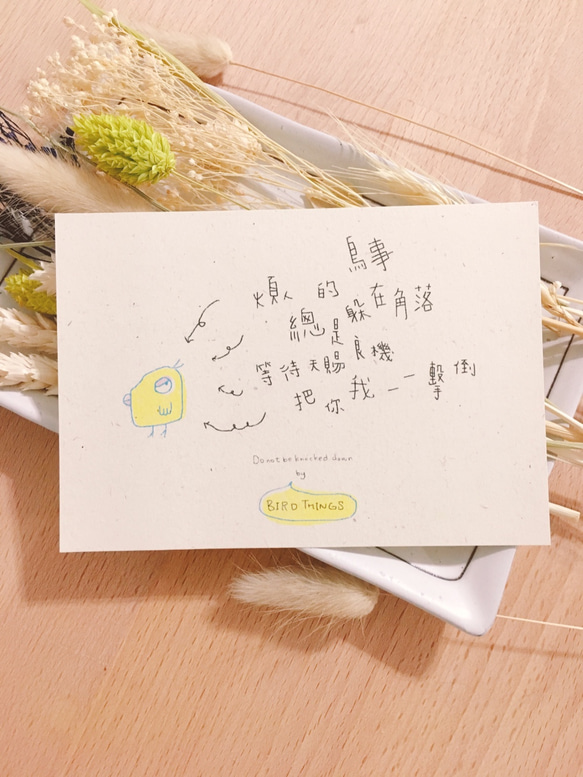 鳥事
煩人的
總是躲在角落
等待天賜良機
把你我一一擊倒
Do not be knocked down
by
BIRD THINGS